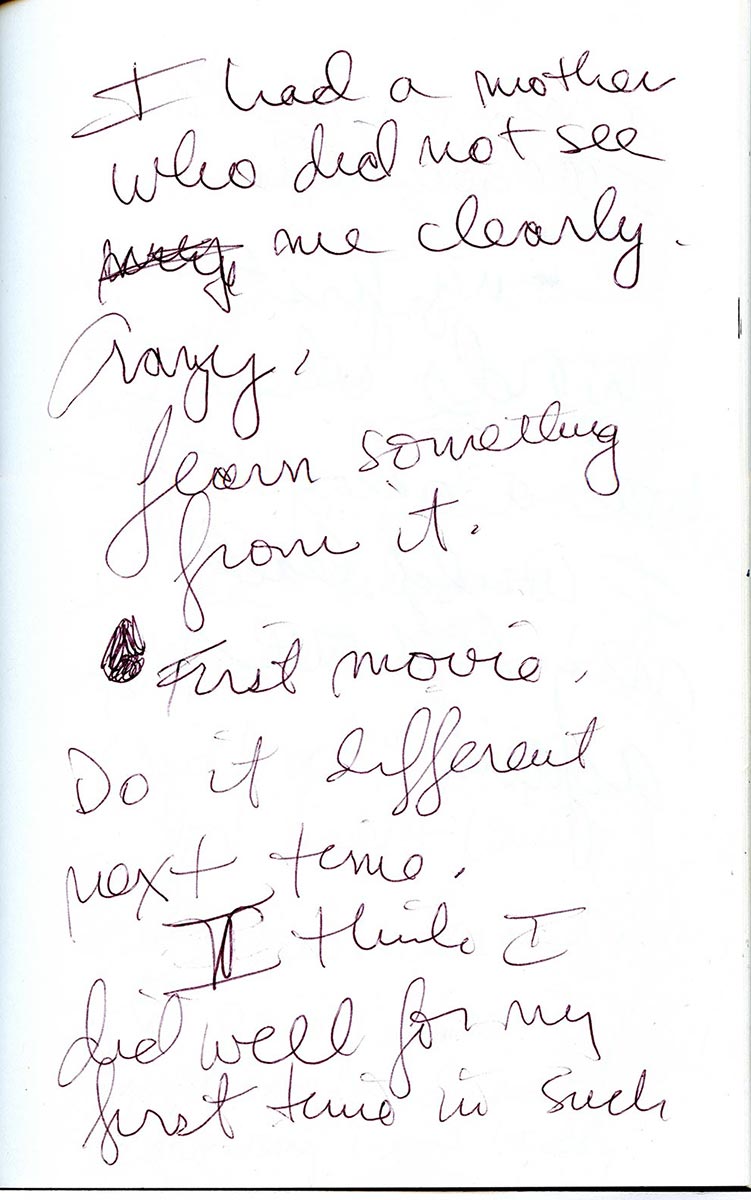 I had a mother
who did not see
me clearly.
Crazy.
learn something
from it.
First movie.
Do it different
next time.
I think I
did well for my
first time in such